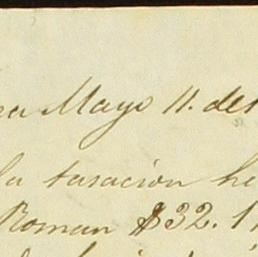 Mayo 11. de
la tasacion he
Roman $32. 1